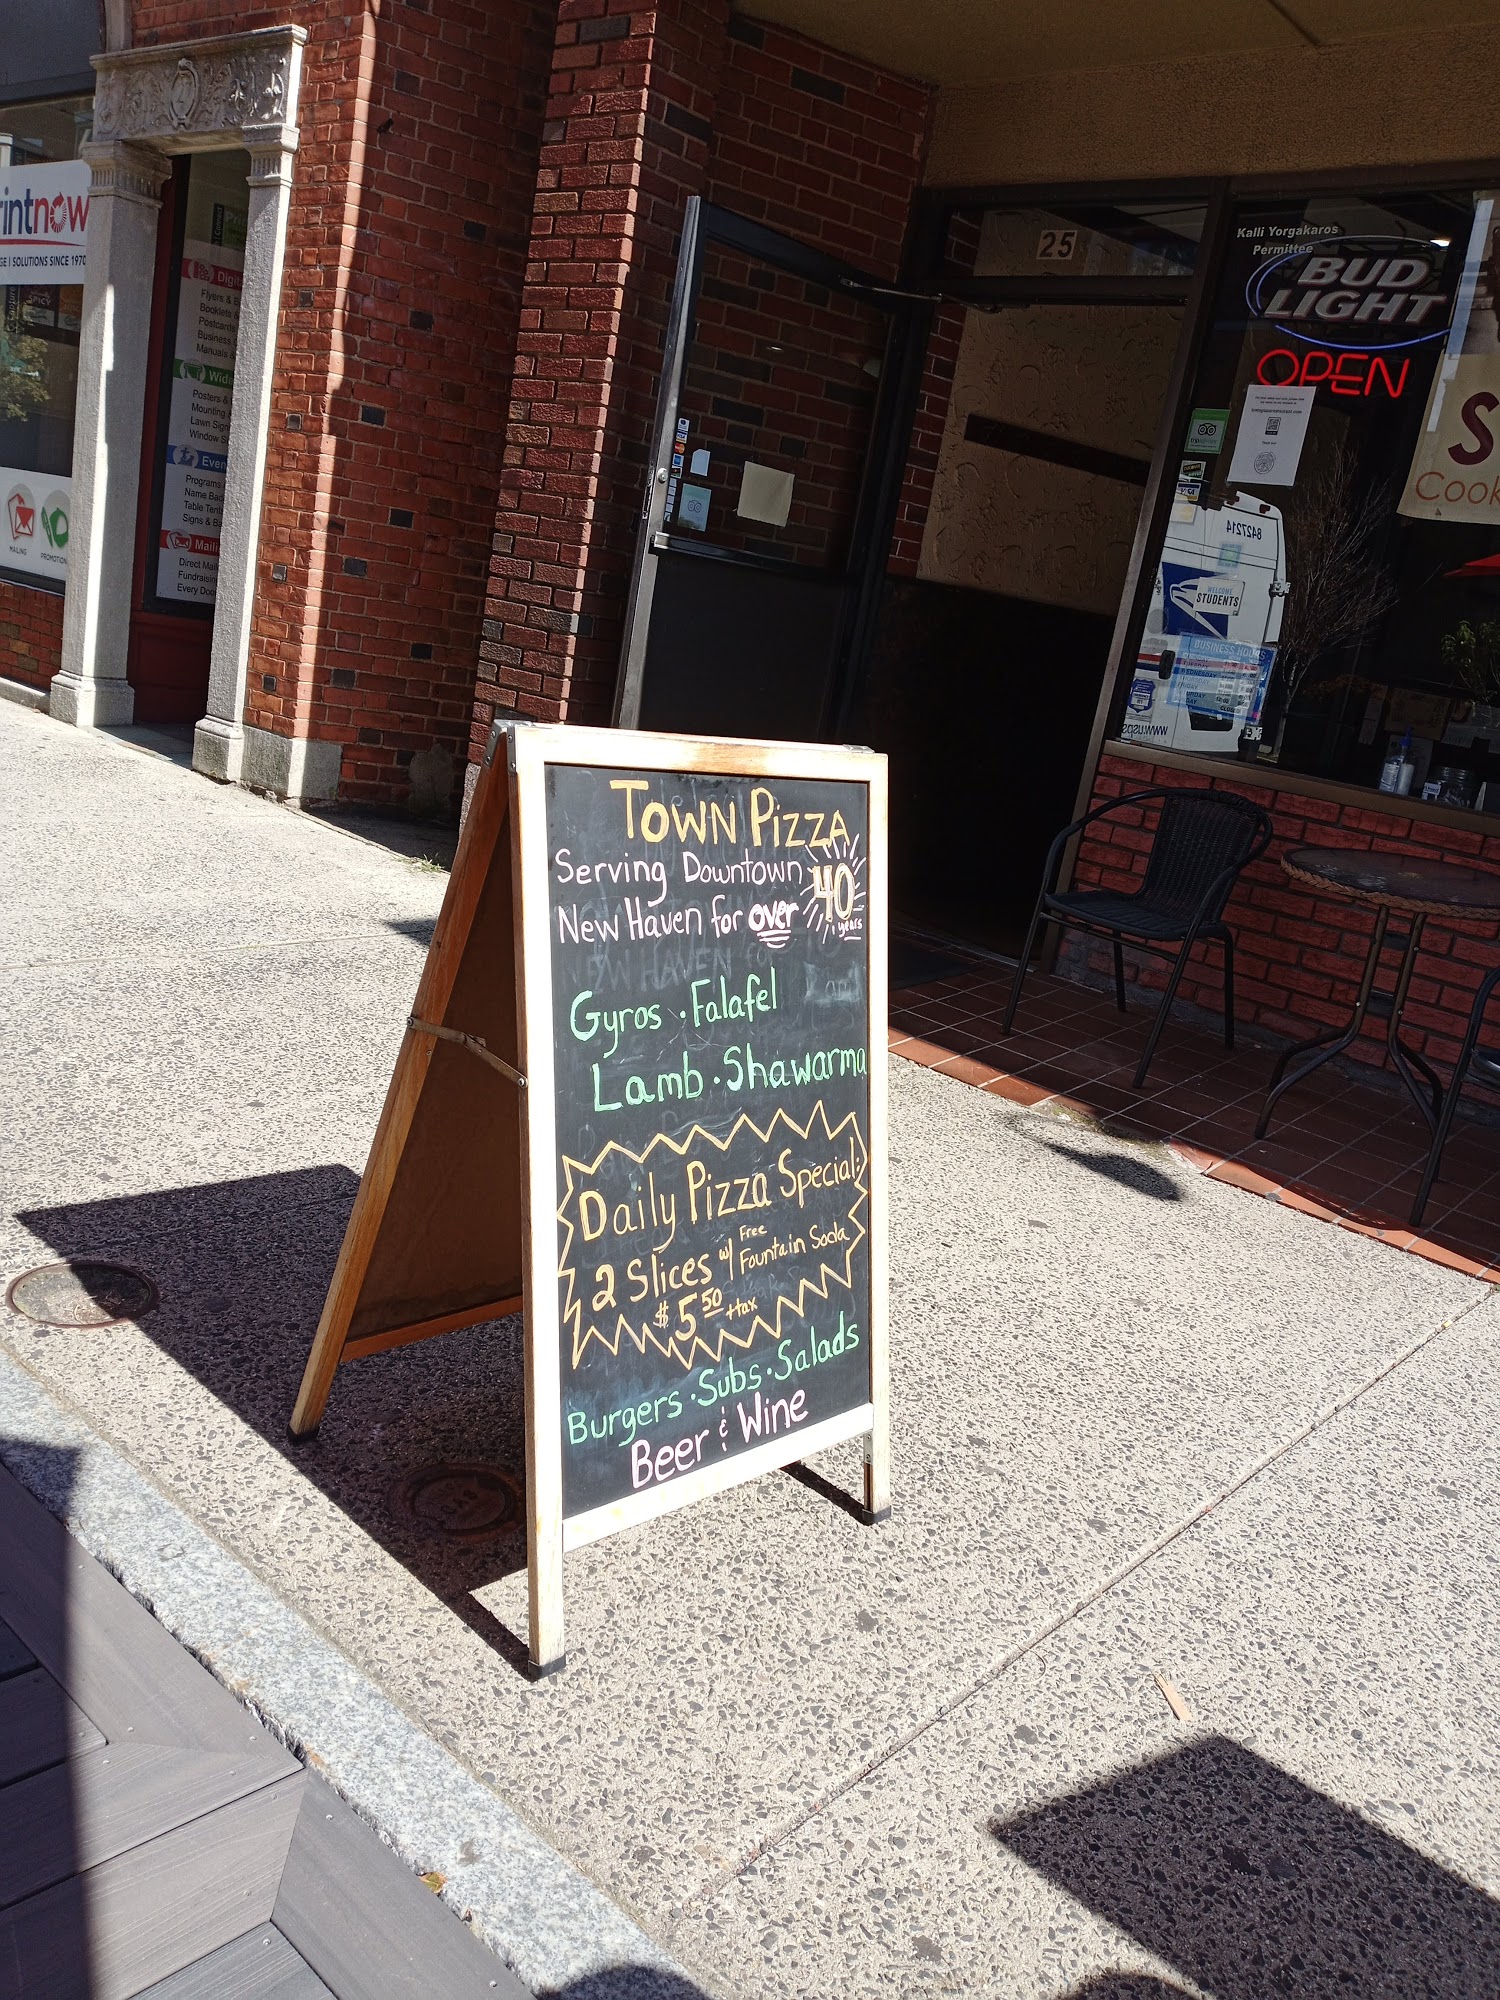 intnow
GE | SOLUTIONS SINCE 1970
SPICY
MAILING
PROMOTION
Digit
Flyers &
Booklets &
Postcards
Business
Manuals &
Wid
Posters &
Mounting
Lawn Sign
Window S
Even
Programs
Name Bad
Table Tent
Signs & Ba
Maili
Direct Mail
Fundraisin
Every Doo
25
Kalli Yorgakaros
Permittee
BUD
LIGHT
OPEN
S
Cook
8427214
WELCOME
STUDENTS
BUSINESS HOURS
TOWN PIZZA
Serving Downtown
New Haven for over 40 years
Gyros · Falafel
Lamb · Shawarma
Daily Pizza Special:
2 Slices w/ Free Fountain Soda
$5.50 + tax
Burgers · Subs · Salads
Beer & Wine